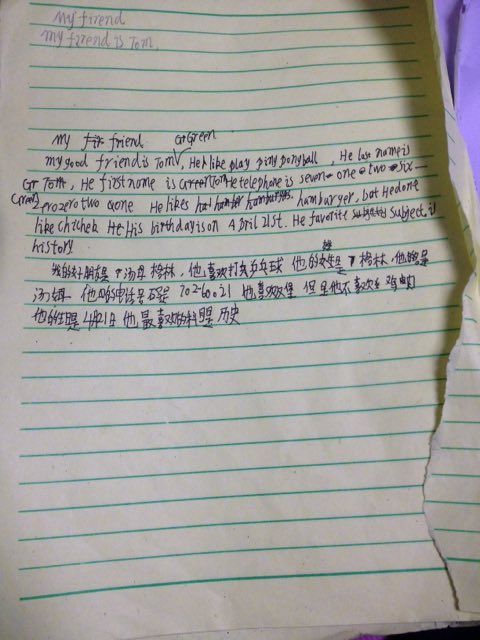 My firend
my firend is Tom.
My friend Green
my good friend is Tom, He like play ping pong ball, He last name is
Green Tom, He first name is Tom He telephone is seven one two six
zero zero two one He likes hamburger, but He done
like chichek He His birthday is on A3ril 21st. He favorite subject is
history
我的好朋友是汤姆 格林,他喜欢打乒乓球 他的姓是格林,他的名是
汤姆 他的电话号码是 702-60021 他喜欢汉堡 但是他不喜欢鸡肉
他的生日是4月21日 他最喜欢的科目是 历史